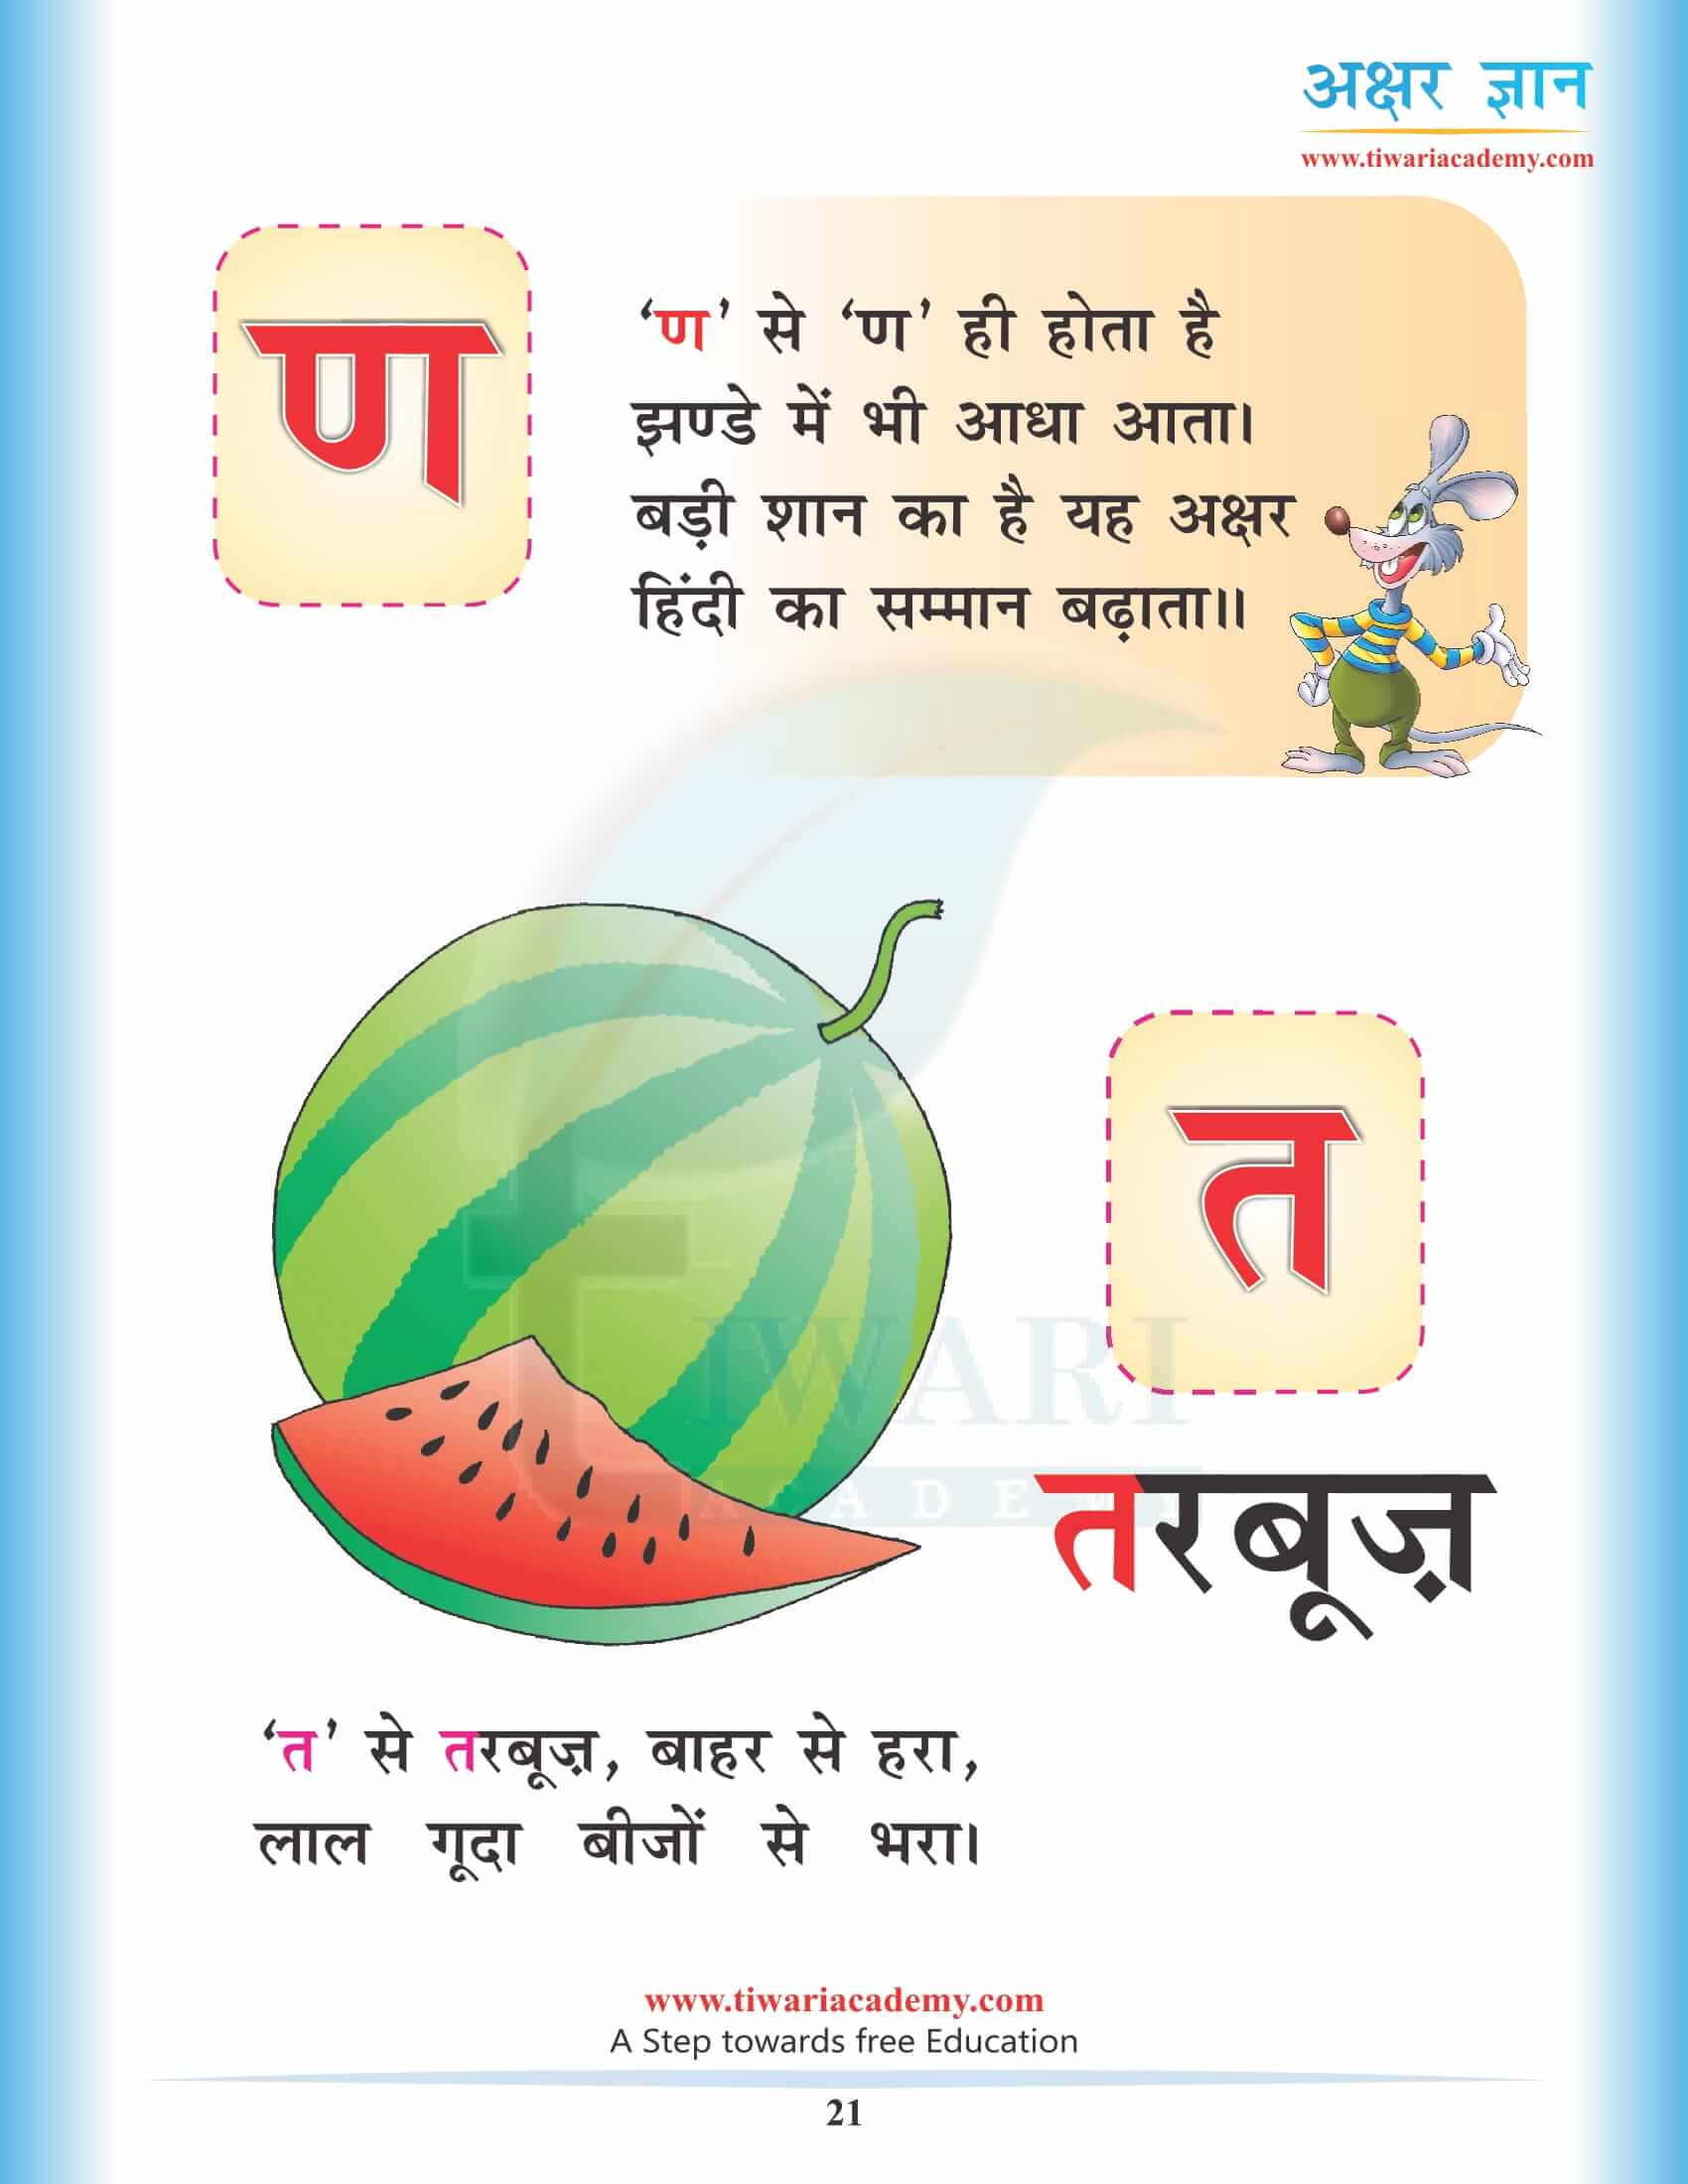 अक्षर ज्ञान
www.tiwariacademy.com
ण
‘ण’ से ‘ण’ ही होता है
झण्डे में भी आधा आता।
बड़ी शान का है यह अक्षर
हिंदी का सम्मान बढ़ाता॥
त
TIWARI
ACADEMY
तरबूज़
‘त’ से तरबूज़, बाहर से हरा,
लाल गूदा बीजों से भरा।
www.tiwariacademy.com
A Step towards free Education
21